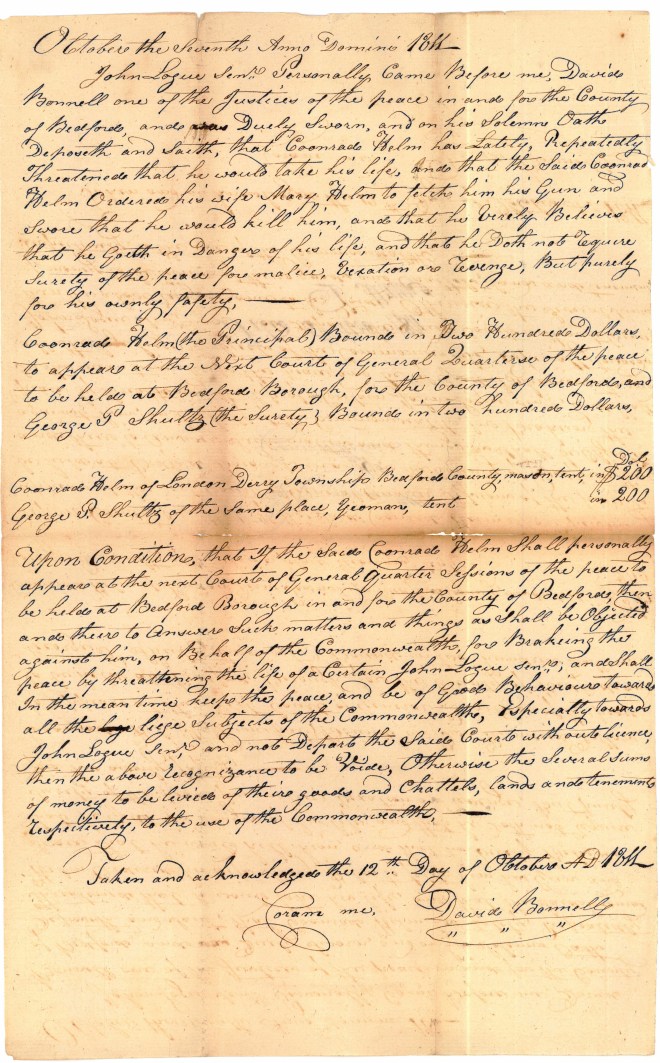 Obtober the Seventh Anno Domini 1811
John Logue Senr. Personally Came Before me, David
Bonnell one of the Justices of the peace in and for the County
of Bedford, and was Duely Sworn, and on his Solemn Oath
Deposeth and Saith, that Coonrad Helm has Lately, Repeatedly
Threatened that he would take his life, and that the Said Coonrad
Helm Ordered his wife Mary Helm to fetch him his Gun and
Swore that he would kill him, and that he Verely Believes
that he Goeth in Danger of his life, and that he Doth not Require
Surety of the peace for malice, Vexation or Revenge, But purely
for his ownly safety,
Coonrad Helm (the Principal) Bound in Two Hundred Dollars,
to appear at the Next Court of General Quarterse of the peace
to be held at Bedford Borough, for the County of Bedford, and
George P Shultz (the Surety) Bound in two hundred Dollars,
Dols
Coonrad Helm of London Derry Township Bedford County, mason, tent, in $ 200
George P. Shultz of the Same place, Yeoman, tent in 200
Upon Condition, that If the Said Coonrad Helm Shall personally
appear at the next Court of General Quarter Sessions of the peace to
be held at Bedford Borough in and for the County of Bedford, then
and their to Answer Such matters and things as Shall be Objected
against him, on Behalf of the Commonwealth, for Brakeing the
peace by threattening the life of a Certain John Logue Senr, and Shall
In the mean time keep the peace, and be of Good Behaviour towards
all the liege Subjects of the Commonwealth, Especially towards
John Logue Senr and not Depart the Said Court without licence,
then the above Recognizance to be Voide, Otherwise the Several Sums
of money to be livied of their goods and Chattels, lands and tenements
Respectively, to the use of the Commonwealth,
Taken and acknowledged the 12th Day of Obtober AD 1811
Coram me, David Bonnell